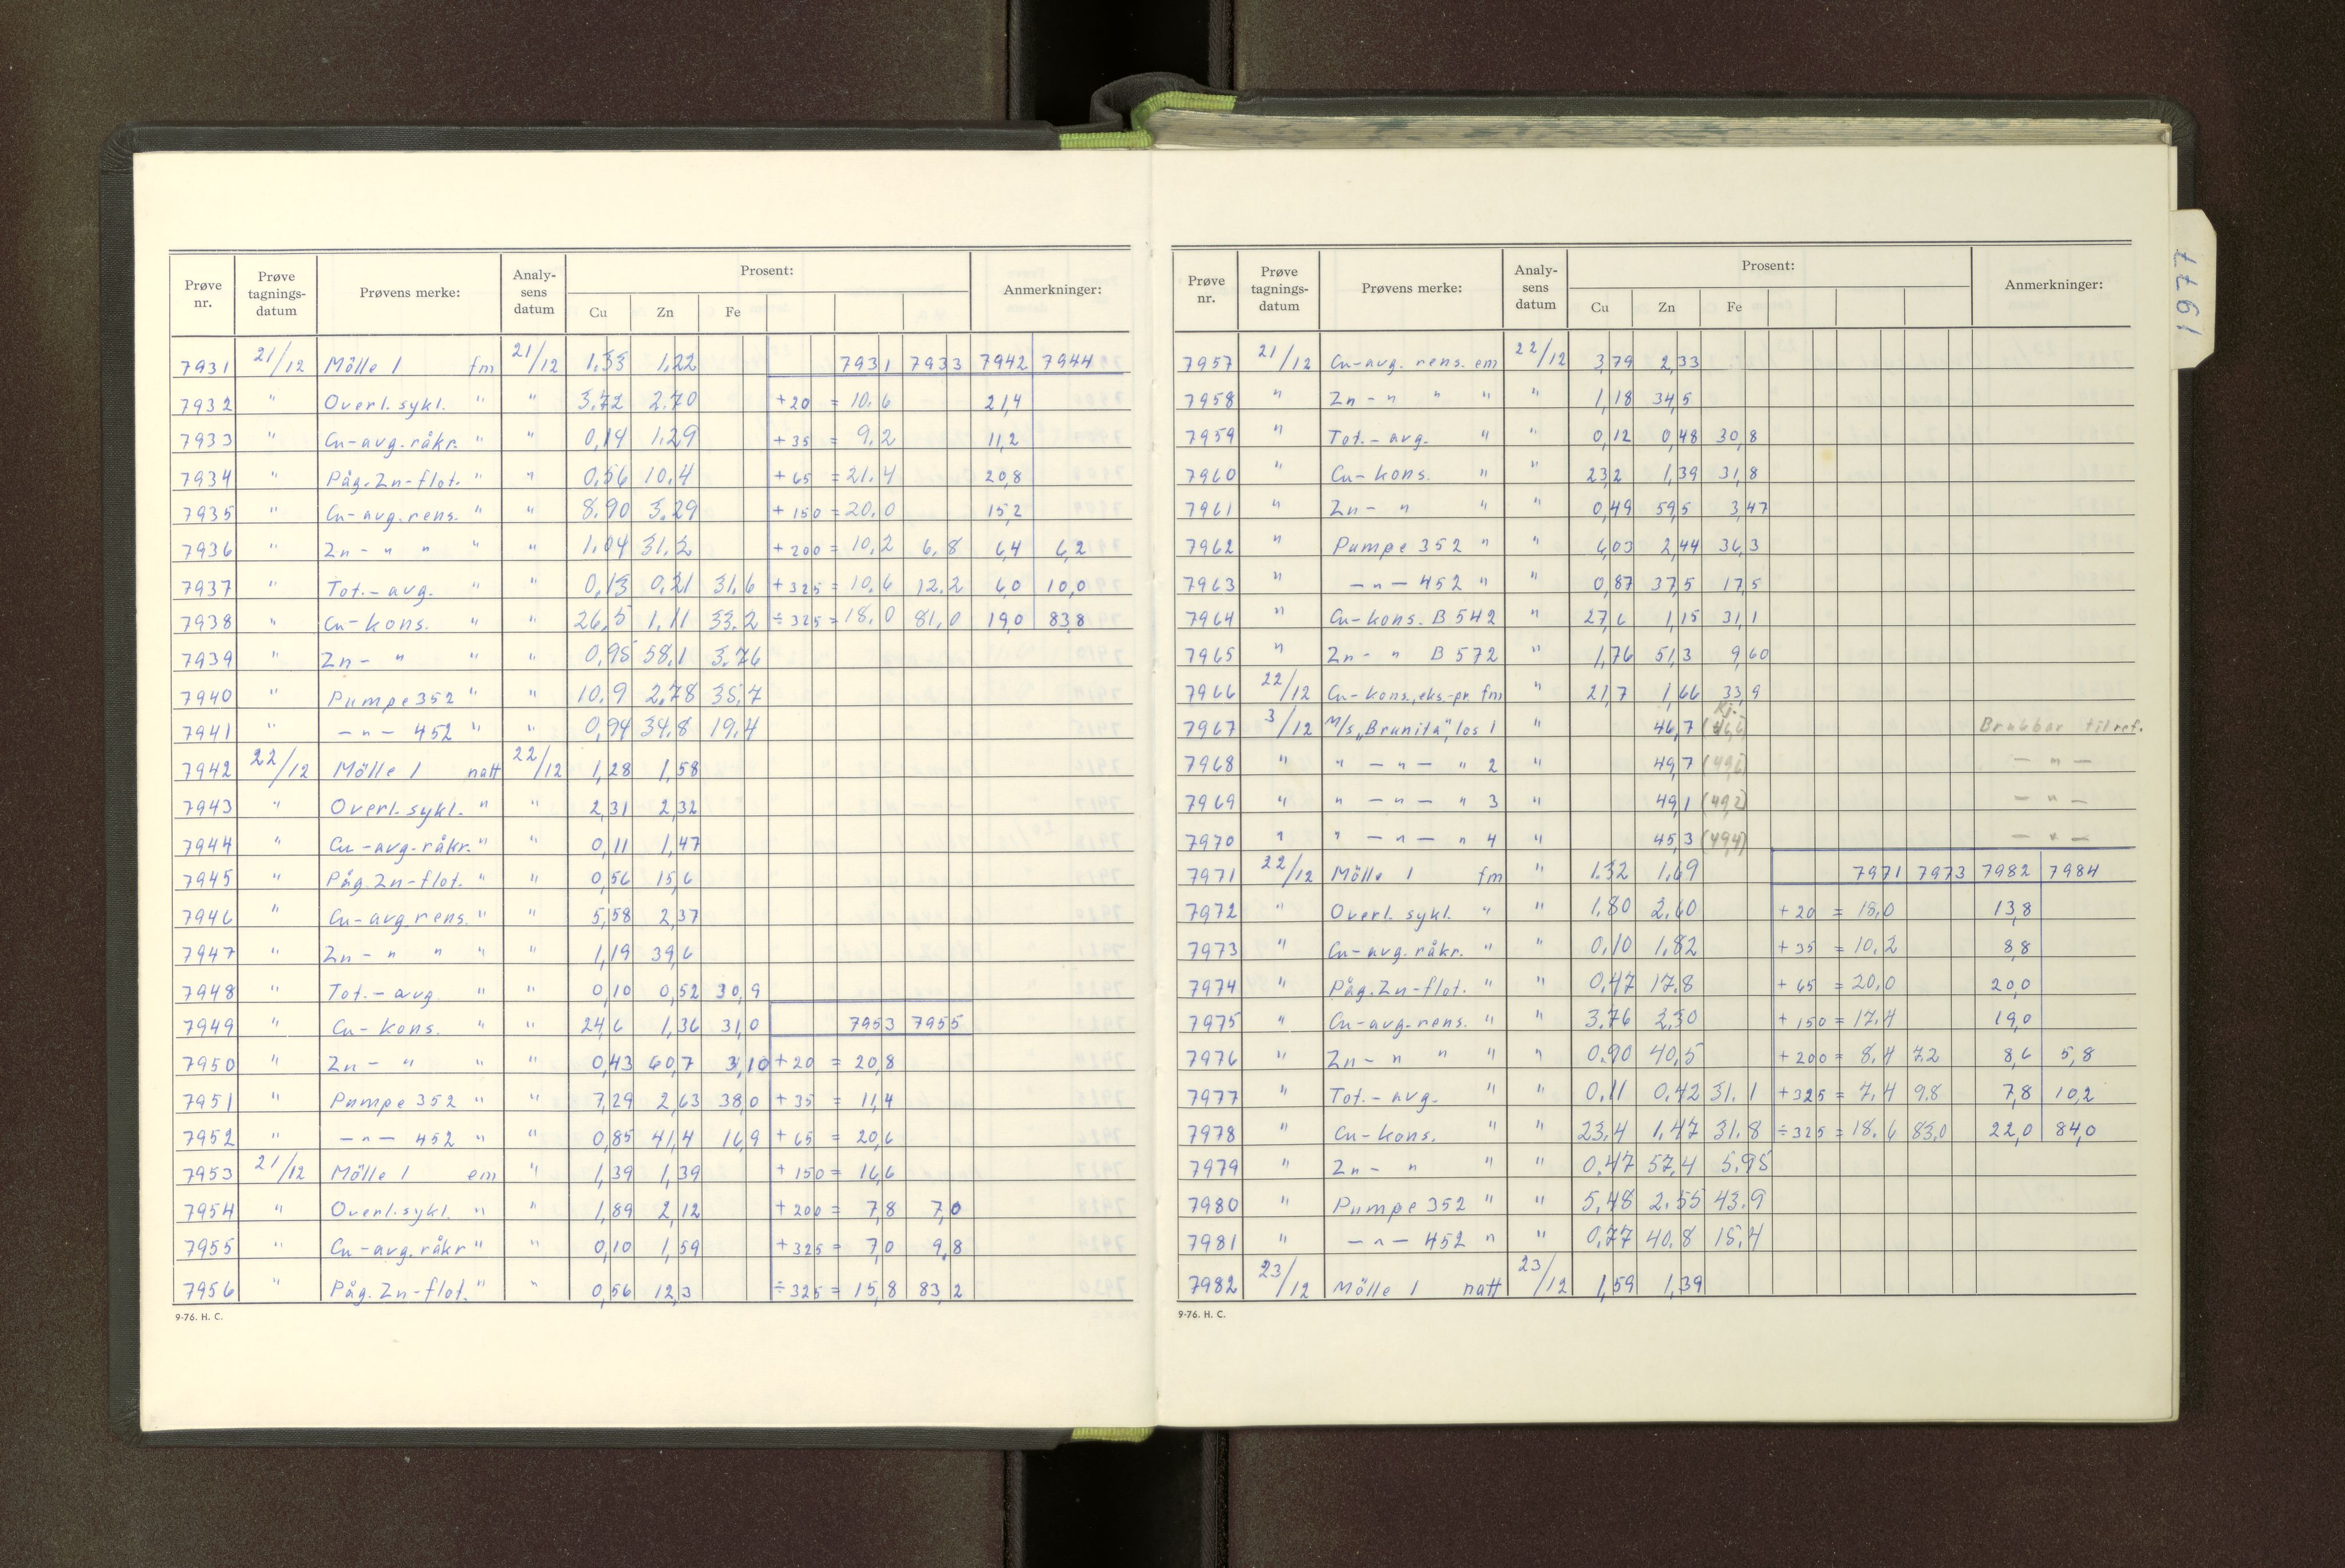 Prøve nr. Prøve tagnings- datum Prøvens merke: Analy- sens datum Prosent: Anmerkninger:
Cu Zn Fe
7931 21/12 Mölle 1 fm 21/12 1,33 1,22 7931 7933 7942 7944
7932 " Overl. sykl. " " 3,72 2,70 +20 = 10,6 21,4
7933 " Cu-avg. råkr. " " 0,14 1,29 +35 = 9,2 11,2
7934 " Påg. Zn-flot. " " 0,56 10,4 +65 = 21,4 20,8
7935 " Cu-avg. rens. " " 8,90 3,29 +150 = 20,0 15,2
7936 " Zn- " " " " 1,04 31,2 +200 = 10,2 6,8 6,4 6,2
7937 " Tot.-avg. " " 0,13 0,21 31,6 +325 = 10,6 12,2 6,0 10,0
7938 " Cu-kons. " " 26,5 1,11 33,2 ÷325 = 18,0 81,0 19,0 83,8
7939 " Zn- " " " 0,95 58,1 3,76
7940 " Pumpe 352 " " 10,9 2,78 35,7
7941 " -"- 452 " " 0,94 34,8 19,4
7942 22/12 Mölle 1 natt 22/12 1,28 1,58
7943 " Overl. sykl. " " 2,31 2,32
7944 " Cu-avg. råkr. " " 0,11 1,47
7945 " Påg. Zn-flot. " " 0,56 15,6
7946 " Cu-avg. rens. " " 5,58 2,37
7947 " Zn- " " " " 1,19 39,6
7948 " Tot.-avg. " " 0,10 0,52 30,9
7949 " Cu-kons. " " 24,6 1,36 31,0 7953 7955
7950 " Zn- " " " 0,43 60,7 3,10 +20 = 20,8
7951 " Pumpe 352 " " 7,29 2,63 38,0 +35 = 11,4
7952 " -"- 452 " " 0,85 41,4 16,9 +65 = 20,6
7953 21/12 Mölle 1 em " 1,39 1,39 +150 = 16,6
7954 " Overl. sykl. " " 1,89 2,12 +200 = 7,8 7,0
7955 " Cu-avg. råkr " " 0,10 1,59 +325 = 7,0 9,8
7956 " Påg. Zn-flot. " " 0,56 12,3 ÷325 = 15,8 83,2
9-76. H. C.
Prøve nr. Prøve tagnings- datum Prøvens merke: Analy- sens datum Prosent: Anmerkninger:
Cu Zn Fe
7957 21/12 Cu-avg. rens. em 22/12 3,79 2,33
7958 " Zn- " " " " 1,18 34,5
7959 " Tot.-avg. " " 0,12 0,48 30,8
7960 " Cu-kons. " " 23,2 1,39 31,8
7961 " Zn- " " " 0,49 59,5 3,47
7962 " Pumpe 352 " " 6,03 2,44 36,3
7963 " -"- 452 " " 0,87 37,5 17,5
7964 " Cu-kons. B 542 " 27,6 1,15 31,1
7965 " Zn- " B 572 " 1,76 51,3 9,60
7966 22/12 Cu-kons., eks.-pr. fm " 21,7 1,66 33,9
Kj.
7967 3/12 M/s "Brunita", los 1 " 46,7 (46,6) Brukbar til ref.
7968 " " -"- " 2 " 49,7 (49,6) -"-
7969 " " -"- " 3 " 49,1 (49,2) -"-
7970 " " -"- " 4 " 45,3 (49,4) -"-
7971 22/12 Mölle 1 fm " 1,32 1,69 7971 7973 7982 7984
7972 " Overl. sykl. " " 1,80 2,60 +20 = 18,0 13,8
7973 " Cu-avg. råkr. " " 0,10 1,82 +35 = 10,2 8,8
7974 " Påg. Zn-flot. " " 0,47 17,8 +65 = 20,0 20,0
7975 " Cu-avg. rens. " " 3,76 2,30 +150 = 17,4 19,0
7976 " Zn- " " " " 0,90 40,5 +200 = 8,4 7,2 8,6 5,8
7977 " Tot.-avg. " " 0,11 0,42 31,1 +325 = 7,4 9,8 7,8 10,2
7978 " Cu-kons. " " 23,4 1,47 31,8 ÷325 = 18,6 83,0 22,0 84,0
7979 " Zn- " " " 0,47 57,4 5,95
7980 " Pumpe 352 " " 5,48 2,55 43,9
7981 " -"- 452 " " 0,77 40,8 15,4
7982 23/12 Mölle 1 natt 23/12 1,59 1,39
9-76. H. C.
1977